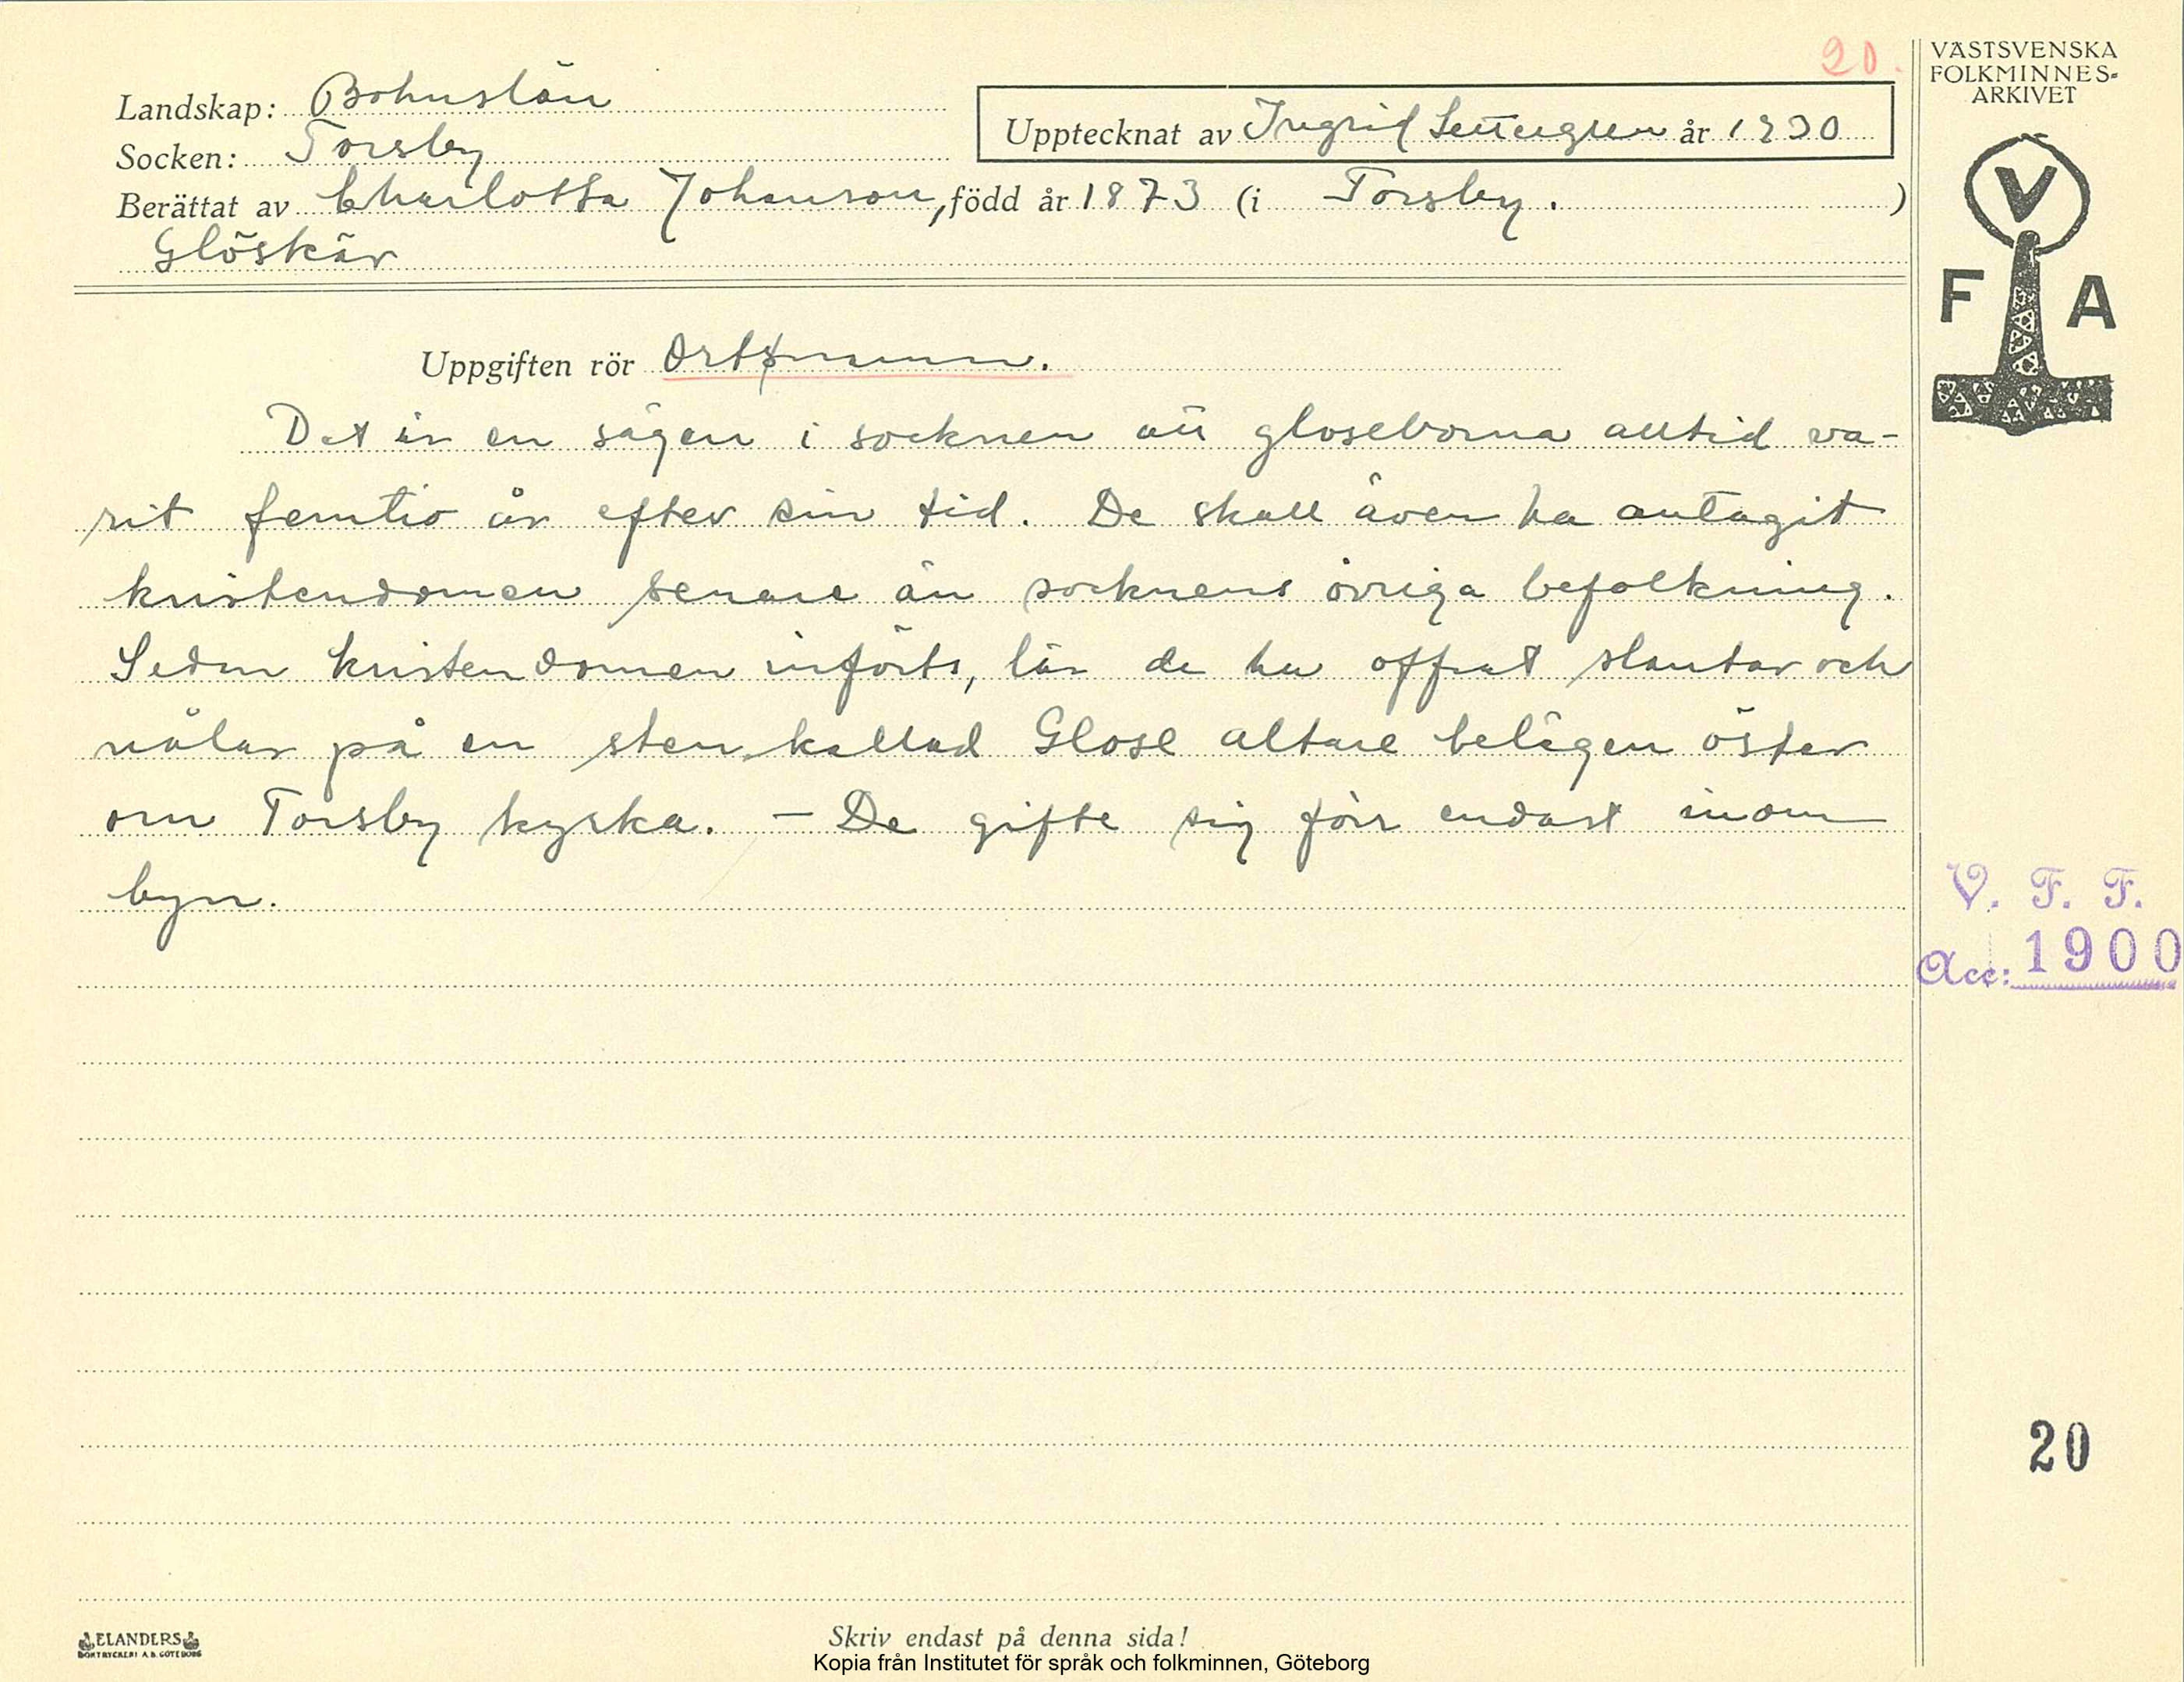 20.
VÄSTSVENSKA
FOLKMINNES-
ARKIVET
Landskap: Bohuslän
Upptecknat av Ingrid år 1930
Socken: Torsby
Berättat av Charlotta Johanson, född år 1873 (i Torsby. )
Glöskär
V
F A
Uppgiften rör Ortsnamn.
Det är en sägen i socknen att gloseborna alltid va-
rit femtio år efter sin tid. De skall även ha antagit
kristendomen senare än socknens övriga befolkning.
Sedan kristendomen införts, lär de ha offrat slantar och
nålar på en sten kallad Glose altare belägen öster
om Torsby kyrka. — De gifte sig förr endast inom
byn.
V. F. F.
Acc: 1900
20
ELANDERS
BOKTRYCKERI A.B. GÖTEBORG
Skriv endast på denna sida!
Kopia från Institutet för språk och folkminnen, Göteborg